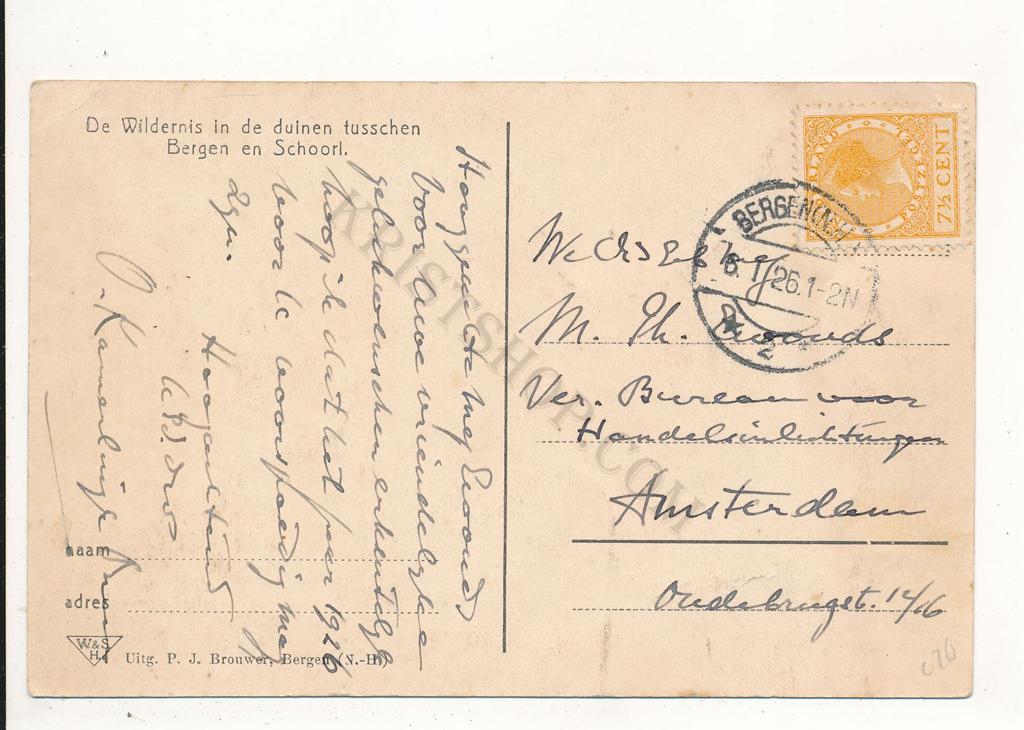 De Wildernis in de duinen tusschen
Bergen en Schoorl.
Hooggeachte Mej
voor Uwe vriendelyke
gelukwenschen erkentelyk
hoop ik dat het jaar 1926
voor U voorspoedig mag
zyn.
Hoogachtend
naam
adres
W&S
H
Uitg. P. J. Brouwer, Bergen (N.-H)
NEDERLAND
POSTZEGEL
7½ CENT
BERGEN(N.H)
6.1/26.1-2N
2
M. Th.
Ver. Bureau voor
Handelsinlichtingen
Amsterdam
Oudebrugst. 14/16
c70
KRISTSHOP.COM